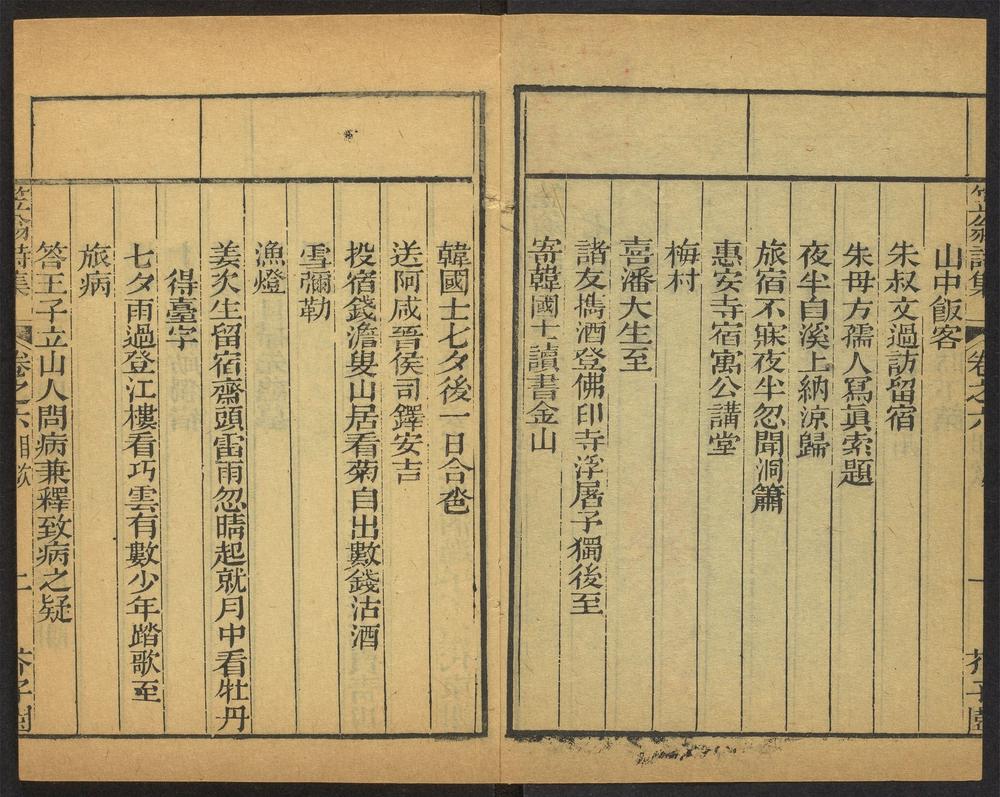 笠翁詩集 卷之六 一 芥子園
山中飯客
朱叔文過訪留宿
朱母方孺人寫眞索題
夜半自溪上納涼歸
旅宿不寐夜半忽聞洞簫
惠安寺宿寓公講堂
梅村
喜潘大生至
諸友攜酒登佛印寺浮屠予獨後至
寄韓國士讀書金山
韓國士七夕後一日合卺
送阿咸晉侯司鐸安吉
投宿錢澹叟山居看菊自出數錢沽酒
雪彌勒
漁燈
姜次生留宿齋頭雷雨忽晴起就月中看牡丹
得臺字
七夕雨過登江樓看巧雲有數少年踏歌至
旅病
答王子立山人問病兼釋致病之疑
笠翁詩集 卷之六 目次 二 芥子園